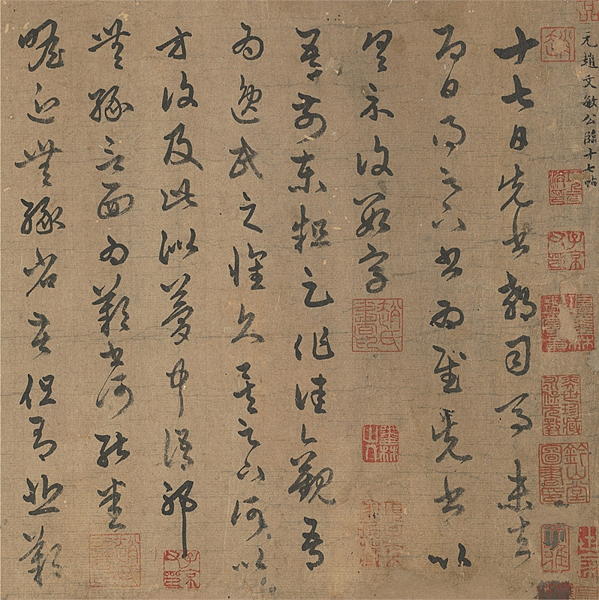 元趙文敏公臨十七帖
十七日先書郗司馬未去
即日得足下書為慰先書以
具示復數字
吾前東粗足作佳觀吾
為逸民之懷久矣足下何以
方復及此似夢中語耶
無緣言面為歎書何能悉
瞻近無緣省苦但有悲歎
趙氏書印